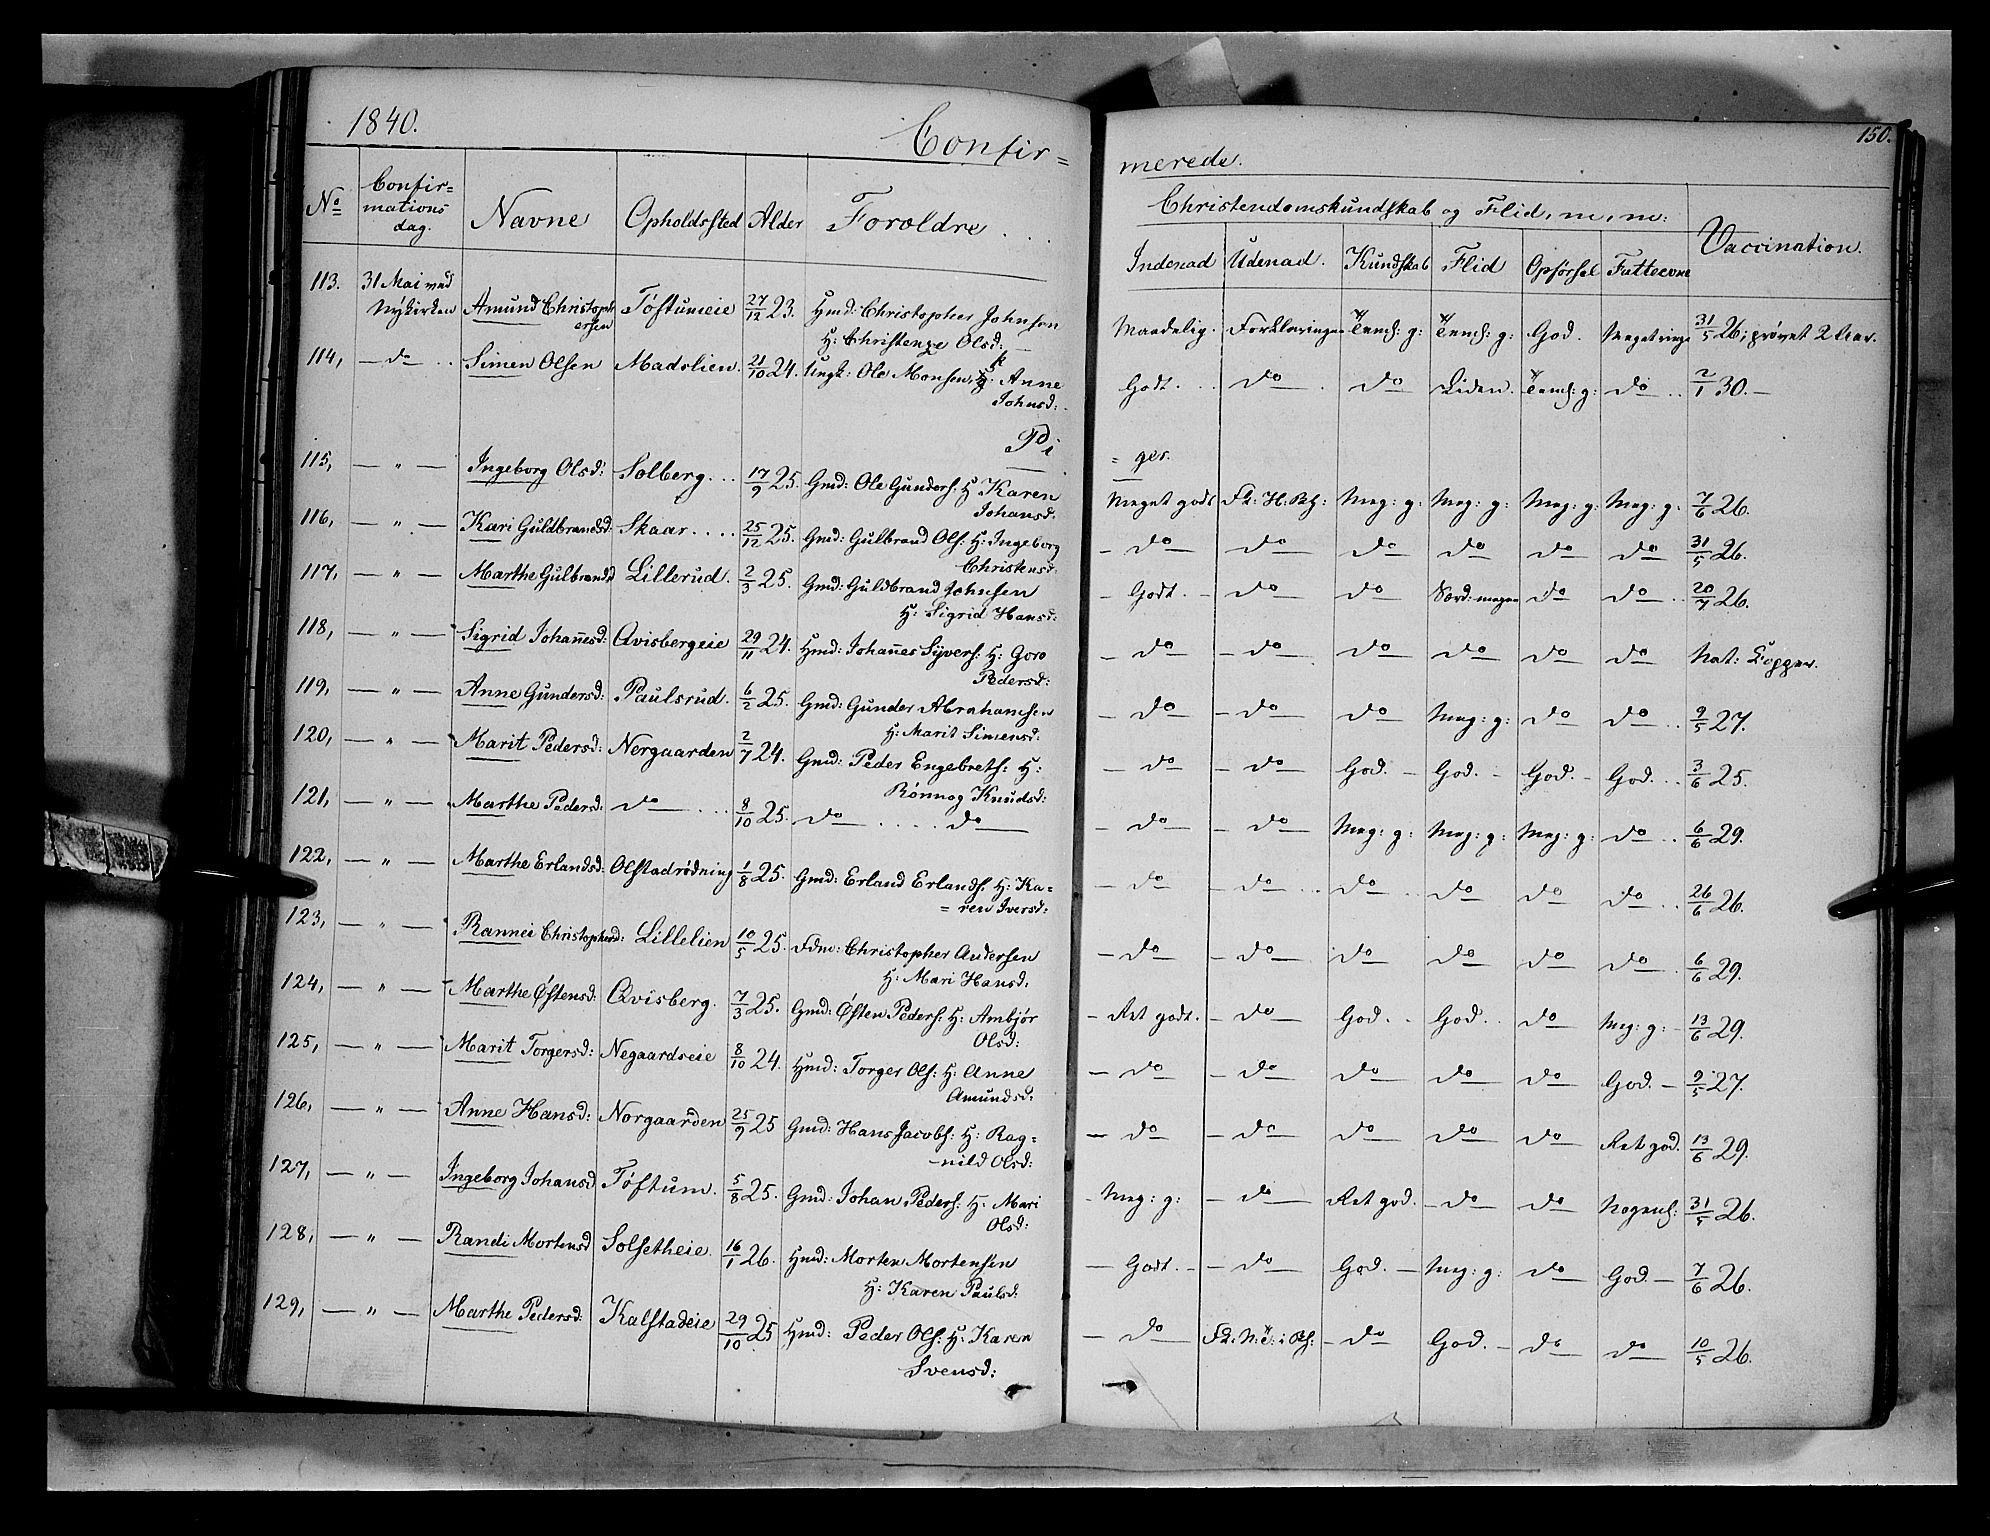 1840.
Confir=
merede.
150.
No
Confir=
mations
dag.
Navne
Opholdssted
Alder
Foroldre
Christendomskundskab og Flid, m, m:
Indenad
Udenad.
Kundskab
Flid
Opførsel
Fatteevne
Vaccination.
113. 31 Mai ved Nykirken Amund Christophersen Tøftumeie 27/12 23. Hmd: Christopher Johnsen
H: Christenze Olsd. Maadelig. Forklaringen Teml: g: Teml: g: God. Meget ringe 31/5 26; prøvet 2 Aar.
114, — do — Simen Olsen Madslien. 21/10 24. Ungk: Ole Monsen, Anne
Johnsd: Godt. do do Liden. Teml: g: do 2/1 30. —
Pi
= ger.
115, — " — Ingeborg Olsd: Solberg... 17/9 25. Gmd: Ole Gunders: H Karen
Johansd: Meget godt Fk: H: Bs: Meg: g: Meg: g: Meg: g: Meg: g. 7/6 26.
116, — " — Kari Guldbrandsd: Skaar.... 25/12 25. Gmd: Gulbrand Ols: H: Ingeborg
Christensd. do do do do do do 31/5 26.
117, — " — Marthe Gulbrandsd Lillerud. 2/3 25. Gmd: Guldbrand Johnsen
H: Sigrid Hansd: Godt. do do do do 20/7 26.
118, — " — Sigrid Johañesd: Qvisbergeie 29/11 24. Hmd: Johañes Syvers: H: Goro
Pedersd: do do do do do do Nat: Kopper.
119, — " — Anne Gundersd: Paulsrud. 6/2 25. Gmd: Gunder Abrahamsen
H: Marit Simensd: do do do Meg: g: do do 9/5 27.
120, — " — Marit Pedersd: Nergaarden 2/7 24. Gmd: Peder Engebrets: H:
Rönnog Knudsd: do do God. God. God. God. 3/6 25.
121, — " — Marthe Pedersd: do 8/10 25. do .... do do do Meg: g: Meg: g: Meg: g: do 6/6 29.
122, — " — Marthe Erlandsd: Olstadrødning 1/8 25. Gmd: Erland Erlands: H: Ka=
= ren Iversd: do do do do do do 26/6 26.
123, — " — Rannei Christophersd: Lillelien 10/5 25. Fdm: Christopher Andersen
H: Mari Hansd: do do do do do do 6/6 29.
124, — " — Marthe Østensd: Qvisberg. 7/3 25. Gmd: Østen Peders: H: Ambjør
Olsd: Ret godt. do God. God. do Meg: g: 13/6 29.
125, — " — Marit Torgersd: Negaardseie 8/10 24. Hmd: Torger Ols: H: Anne
Amundsd: do do do do do God. 9/5 27.
126, — " — Anne Hansd: Norgaarden 25/9 25 Gmd: Hans Jacobs: H: Rag=
-nild Olsd: do do do do do Ret god. 13/6 29.
127, — " — Ingeborg Johansd Tøftum. 5/8 25. Gmd: Johan Peders: H. Mari
Olsd: Meg: g: do Ret god. do do Nogenl: 31/5 26.
128, — " — Randi Mortensd Solsetheie. 16/1 26. Hmd: Morten Mortensen
H: Karen Paulsd: Godt. do God. Meg: g: do God. 7/6 26.
129, — " — Marthe Pedersd: Kalstadeie 29/10 25 Hmd: Peder Ols: H: Karen
Svensd: do do God. do do 10/5 26.